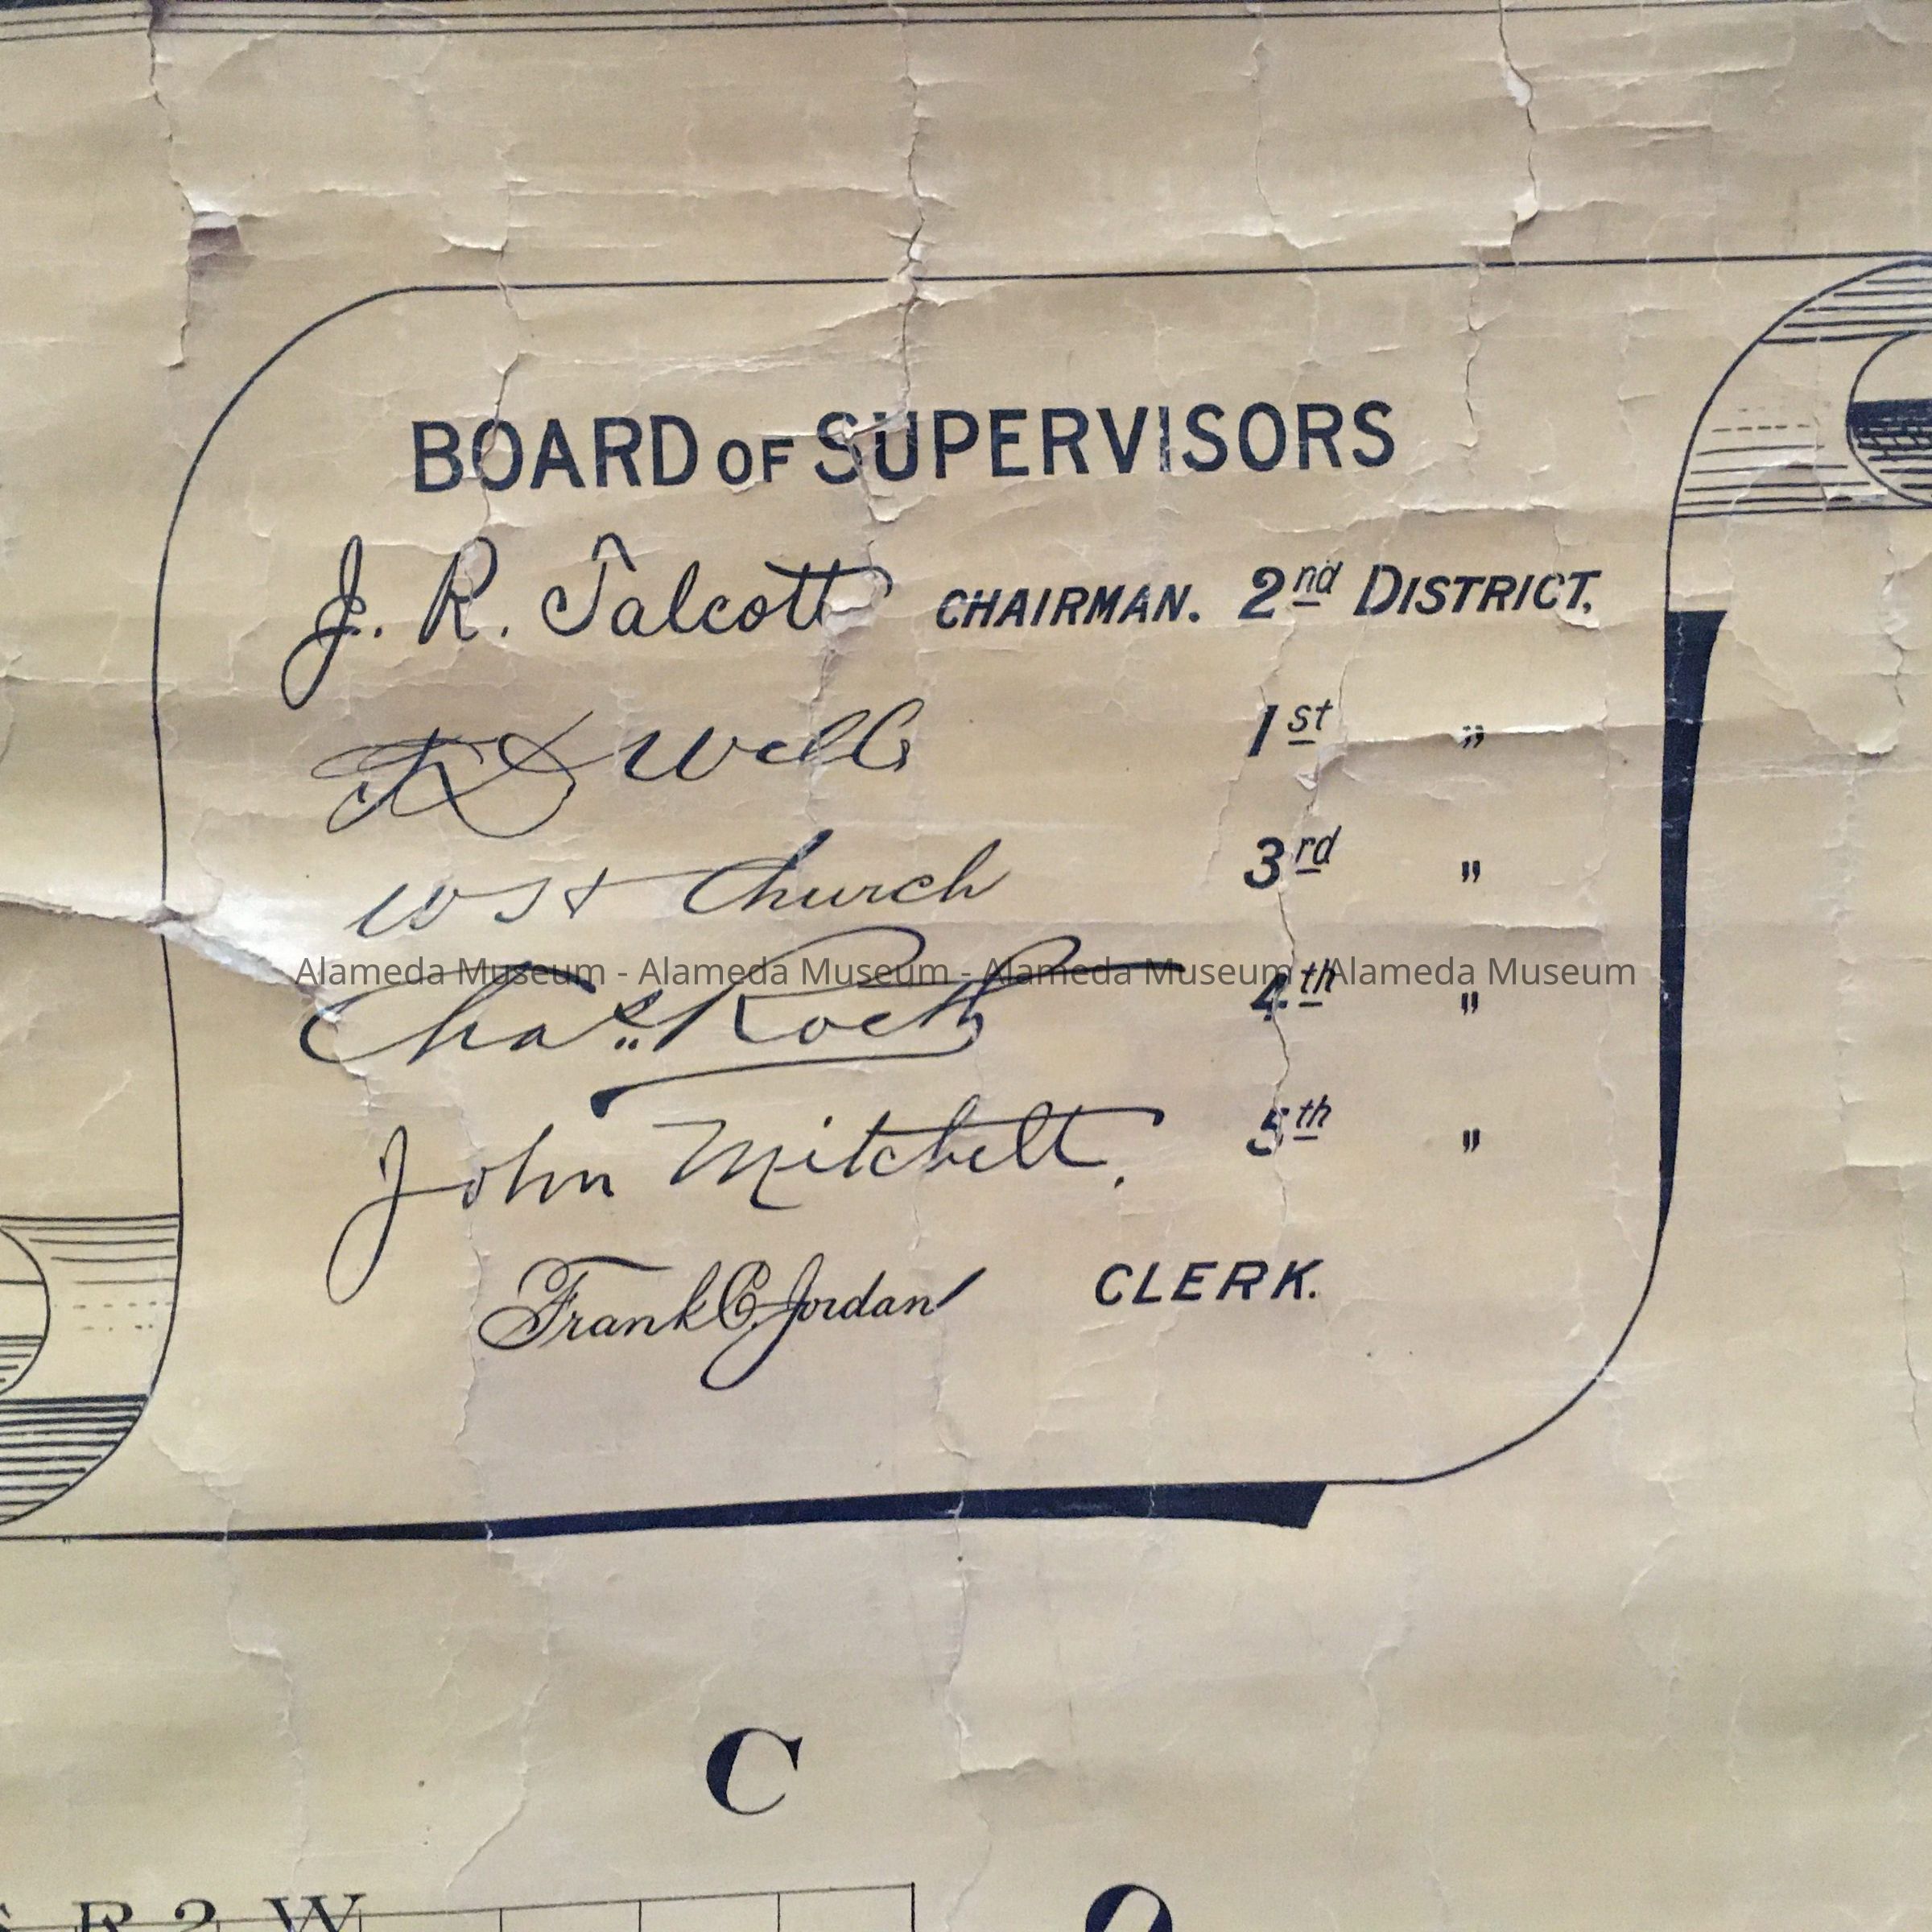 BOARD OF SUPERVISORS
J. R. Talcott CHAIRMAN. 2nd DISTRICT.
Wells 1st "
Church 3rd "
Alameda Museum - Alameda Museum - Alameda Museum - Alameda Museum
Chas. Roeth 4th "
John Mitchell. 5th "
Frank C. Jordan CLERK.
C
R 2 W
O